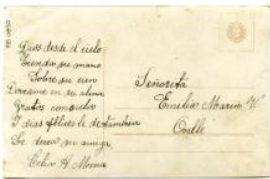 Dios desde el cielo
Tienda su mano
Sobre su
Derrame en su alma
Gratos consuelos
I dias felices le
Le desea su amiga
Celia A
Señorita
Emelia Marin
Calle